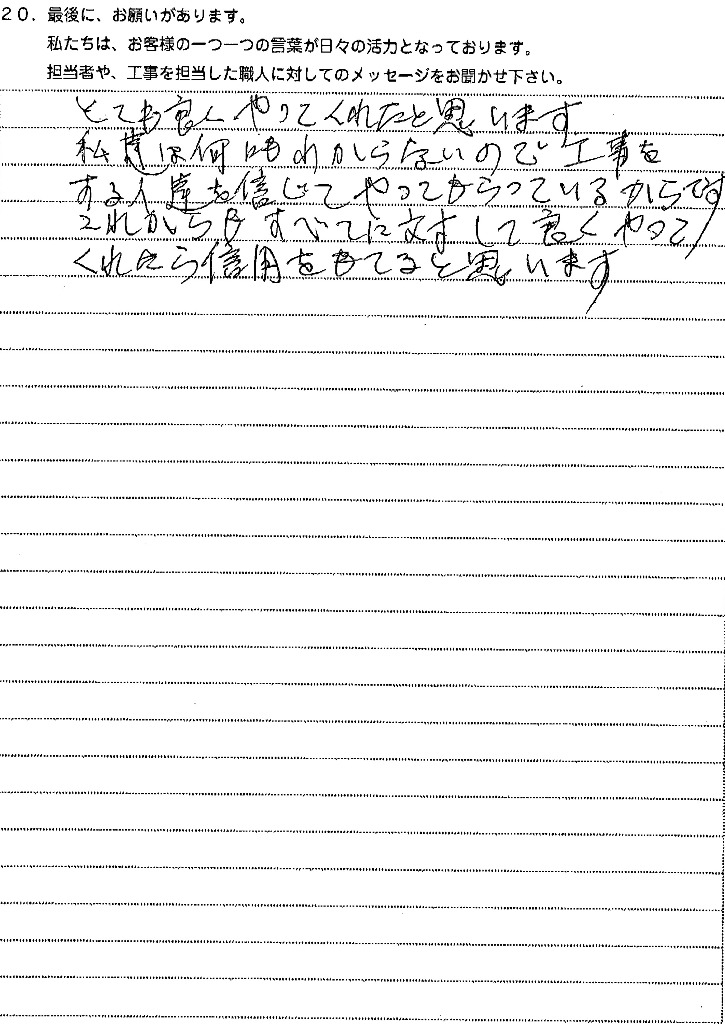 20. 最後に、お願いがあります。
私たちは、お客様の一つ一つの言葉が日々の活力となっております。
担当者や、工事を担当した職人に対してのメッセージをお聞かせ下さい。
とても良くやってくれたと思います
私達は何にもわからないので工事を
する人達を信じてやってもらっているからです
これからもすべてに対して良くやって
くれたら信用をもてると思います